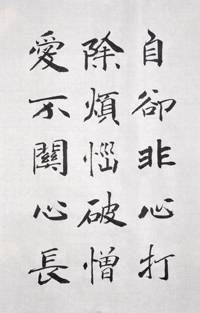 自卻非心打
除煩惱破憎
愛不關心長